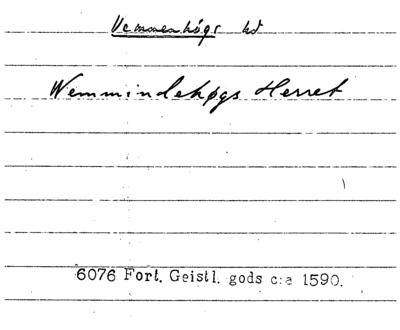 Vemmenhögs hd
Wemmindehøgs Herret
6076 Fort. Geistl. gods c:a 1590.